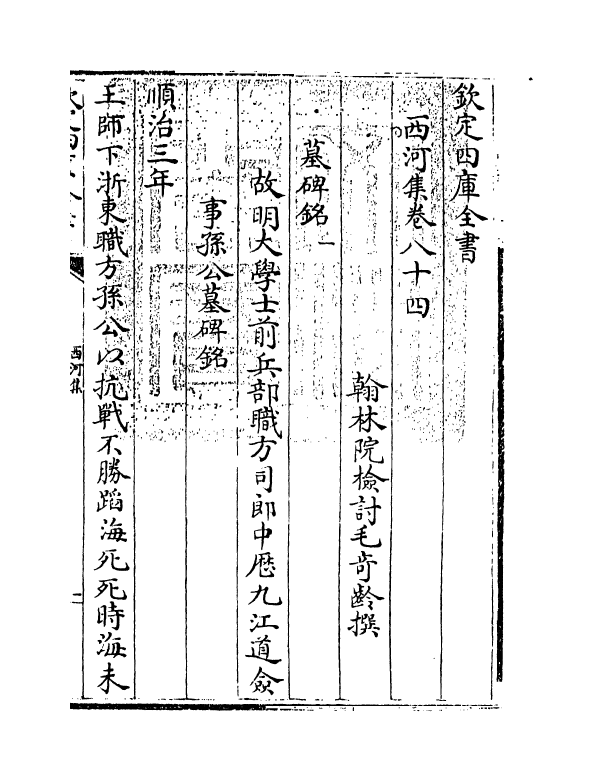 欽定四庫全書
西河集卷八十四
翰林院檢討毛奇齡撰
墓碑銘一
故明大學士前兵部職方司郎中歷九江道僉
事孫公墓碑銘
順治三年
王師下浙東職方孫公以抗戰不勝蹈海死死時海未
西河集